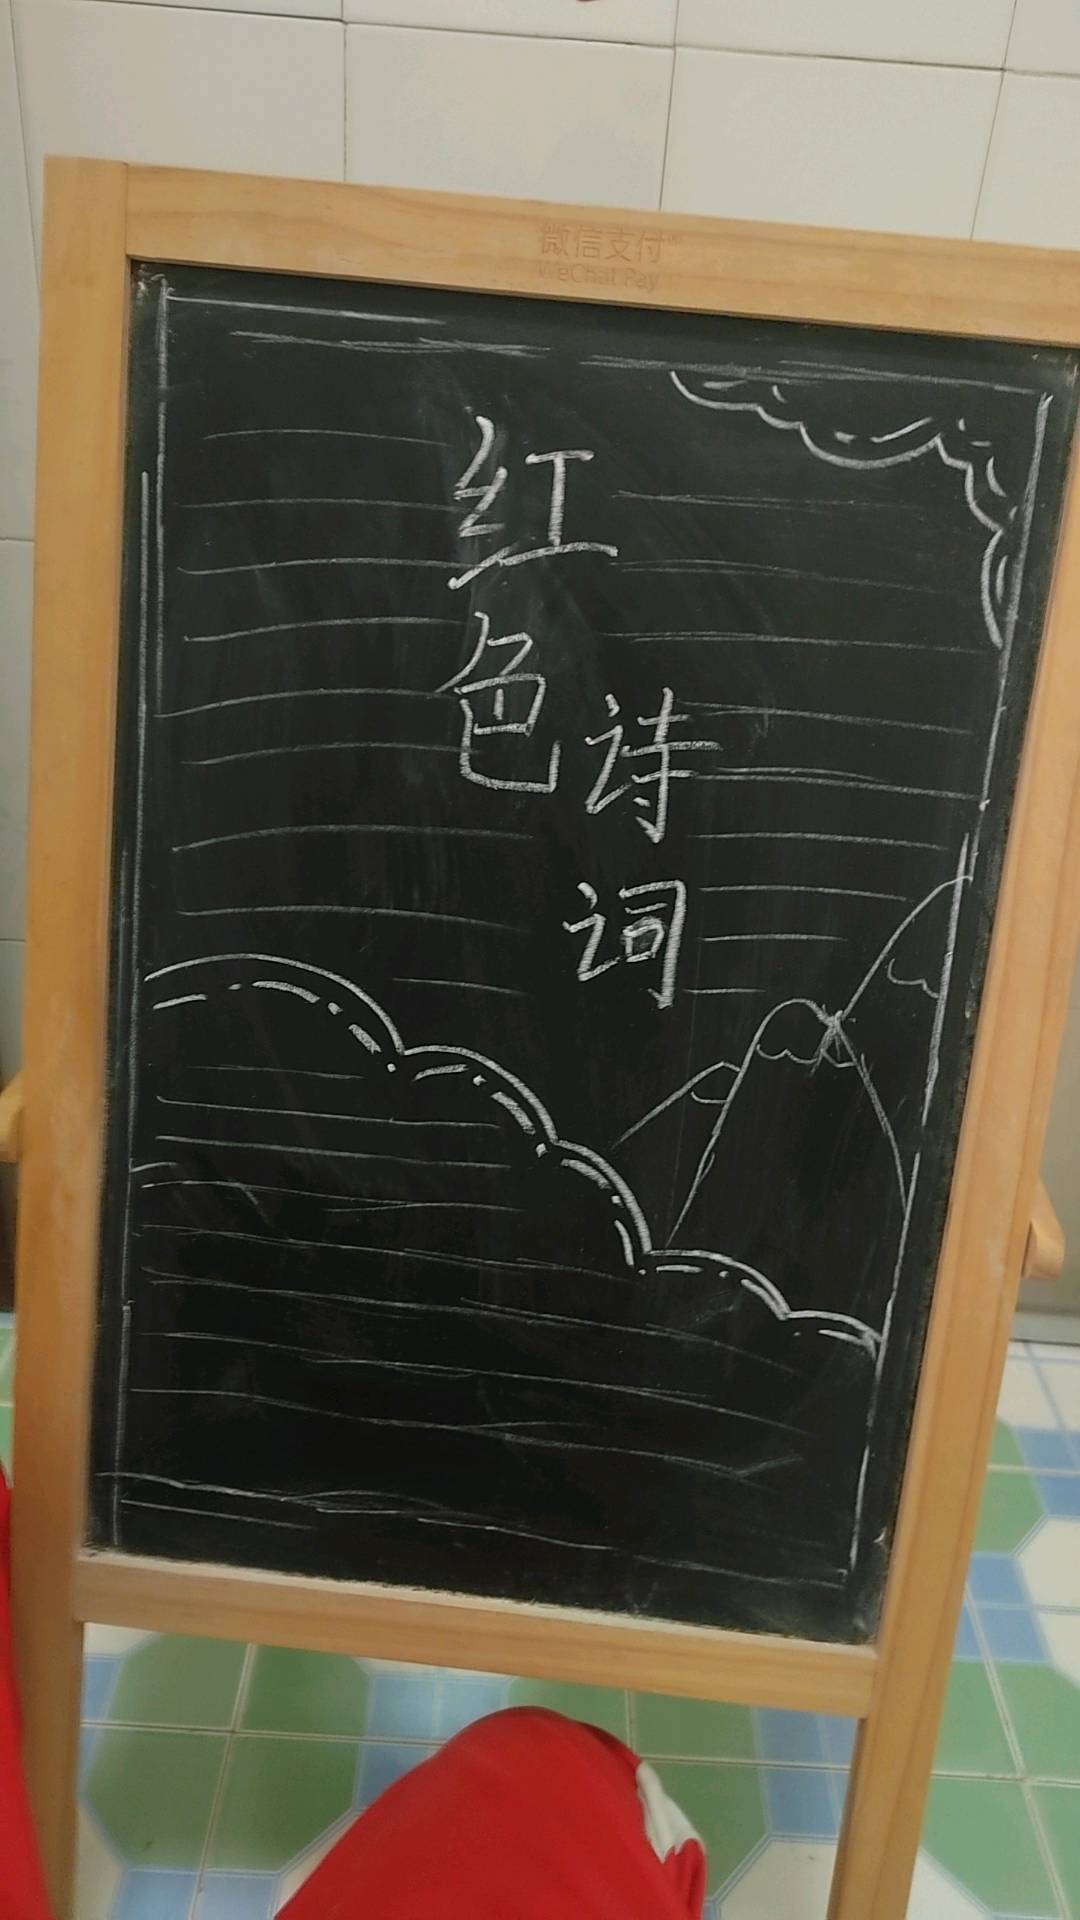 微信支付
WeChat Pay
红色
诗词